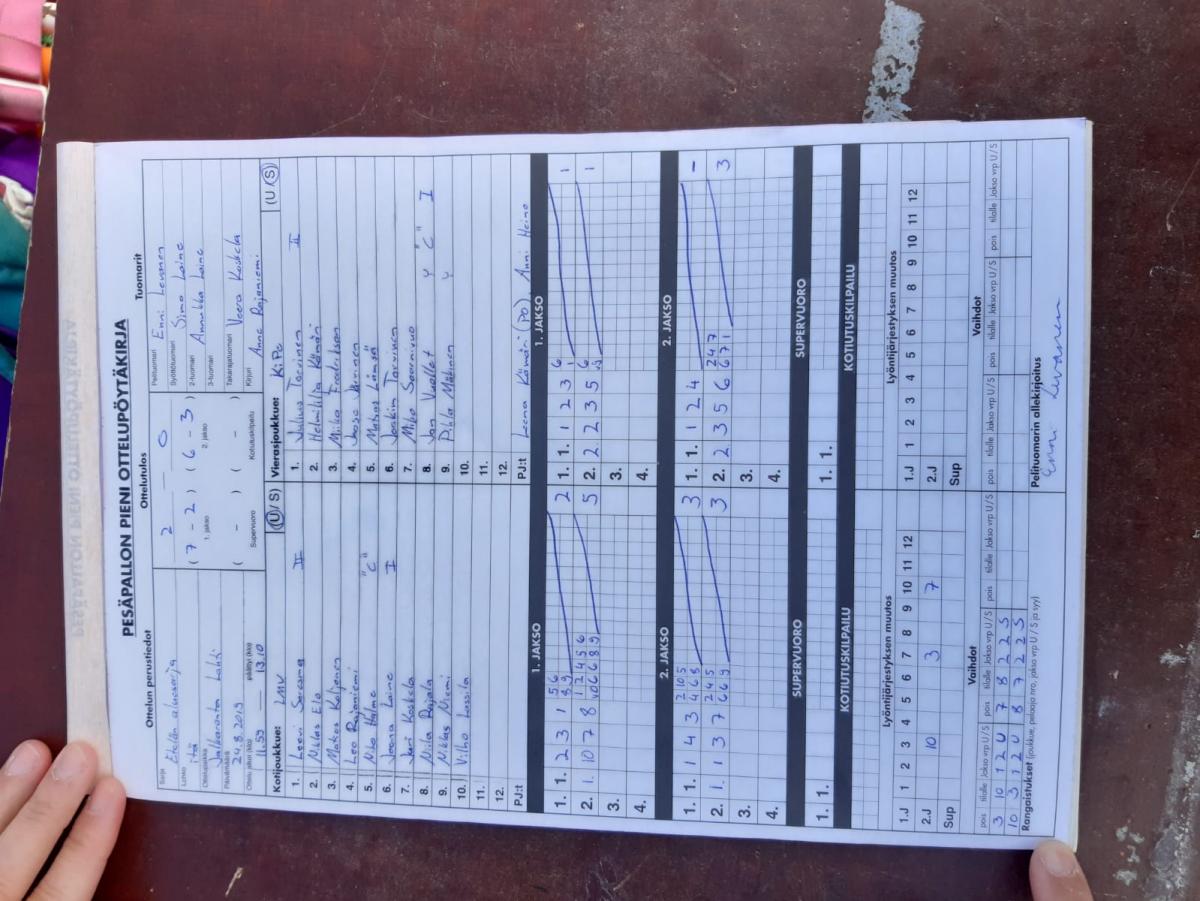 PESÄPALLON PIENI OTTELUPÖYTÄKIRJA
Ottelun perustiedot
Ottelutulos
Tuomarit
Sarja Etelän aluesarja
Lohko itä
Ottelupaikka Jalkaranta Lahti
Päivämäärä 24.8.2019
Ottelu alkoi (klo) 11.59 päättyi (klo) 13.10
2 — 0
(7 - 2) (6 - 3)
1. jakso 2. jakso
( - ) ( - )
Supervuoro Kotiutuskilpailu
Pelituomari Enni Levanen
Syöttötuomari Simo Laine
2-tuomari Annukka Laine
3-tuomari
Takarajatuomari Veera Koskela
Kirjuri Anne Rajaniemi
Kotijoukkue: LMV (U/S)
1. Leevi Saresma II
2. Niklas Elo
3. Matias Koljonen
4. Leo Rajaniemi
5. Niko Holme "C"
6. Joona Laine I
7. Jari Koskela
8. Niila Rajala
9. Niklas Niemi
10. Vilho Lassila
11.
12.
PJ:t
Vierasjoukkue: KiPe (U/S)
1. Julius Torvinen II
2. Helmiliia Kämäri
3. Miika Fredrikson
4. Joose Jarnen
5. Matias Lämsä
6. Joakim Torvinen
7. Miko Saarnivuo
8. Jon Vuollet y "C" I
9. Pihla Mäkinen y
10.
11.
12.
PJ:t Leena Kämäri (PO) Anni Heino
1. JAKSO
1. JAKSO
1. 1. 2 3 1 5 6 8 9 2
2. 1. 10 7 8 1 2 4 5 6 10 6 6 8 9 5
3.
4.
1. 1. 1 2 3 6 1 1
2. 2 2 3 5 6 3 1
3.
4.
2. JAKSO
2. JAKSO
1. 1. 1 4 3 2 10 5 4 6 8 3
2. 1. 1 3 7 2 4 5 6 6 9 3
3.
4.
1. 1. 1 2 4 -
2. 2 3 5 6 2 4 7 6 7 1 3
3.
4.
SUPERVUORO
SUPERVUORO
1. 1.
1. 1.
KOTIUTUSKILPAILU
KOTIUTUSKILPAILU
Lyöntijärjestyksen muutos
Lyöntijärjestyksen muutos
1.J 1 2 3 4 5 6 7 8 9 10 11 12
2.J 10 3 7
Sup
1.J 1 2 3 4 5 6 7 8 9 10 11 12
2.J
Sup
Vaihdot
Vaihdot
pois tilalle Jakso vrp U/S pois tilalle Jakso vrp U/S pois tilalle Jakso vrp U/S
pois tilalle Jakso vrp U/S pois tilalle Jakso vrp U/S pois tilalle Jakso vrp U/S
3 10 1 2 U 7 8 2 2 S
10 3 1 2 U 8 7 2 2 S
Rangaistukset (joukkue, pelaaja nro, jakso vrp U / S ja syy)
Pelituomarin allekirjoitus
Enni Levanen